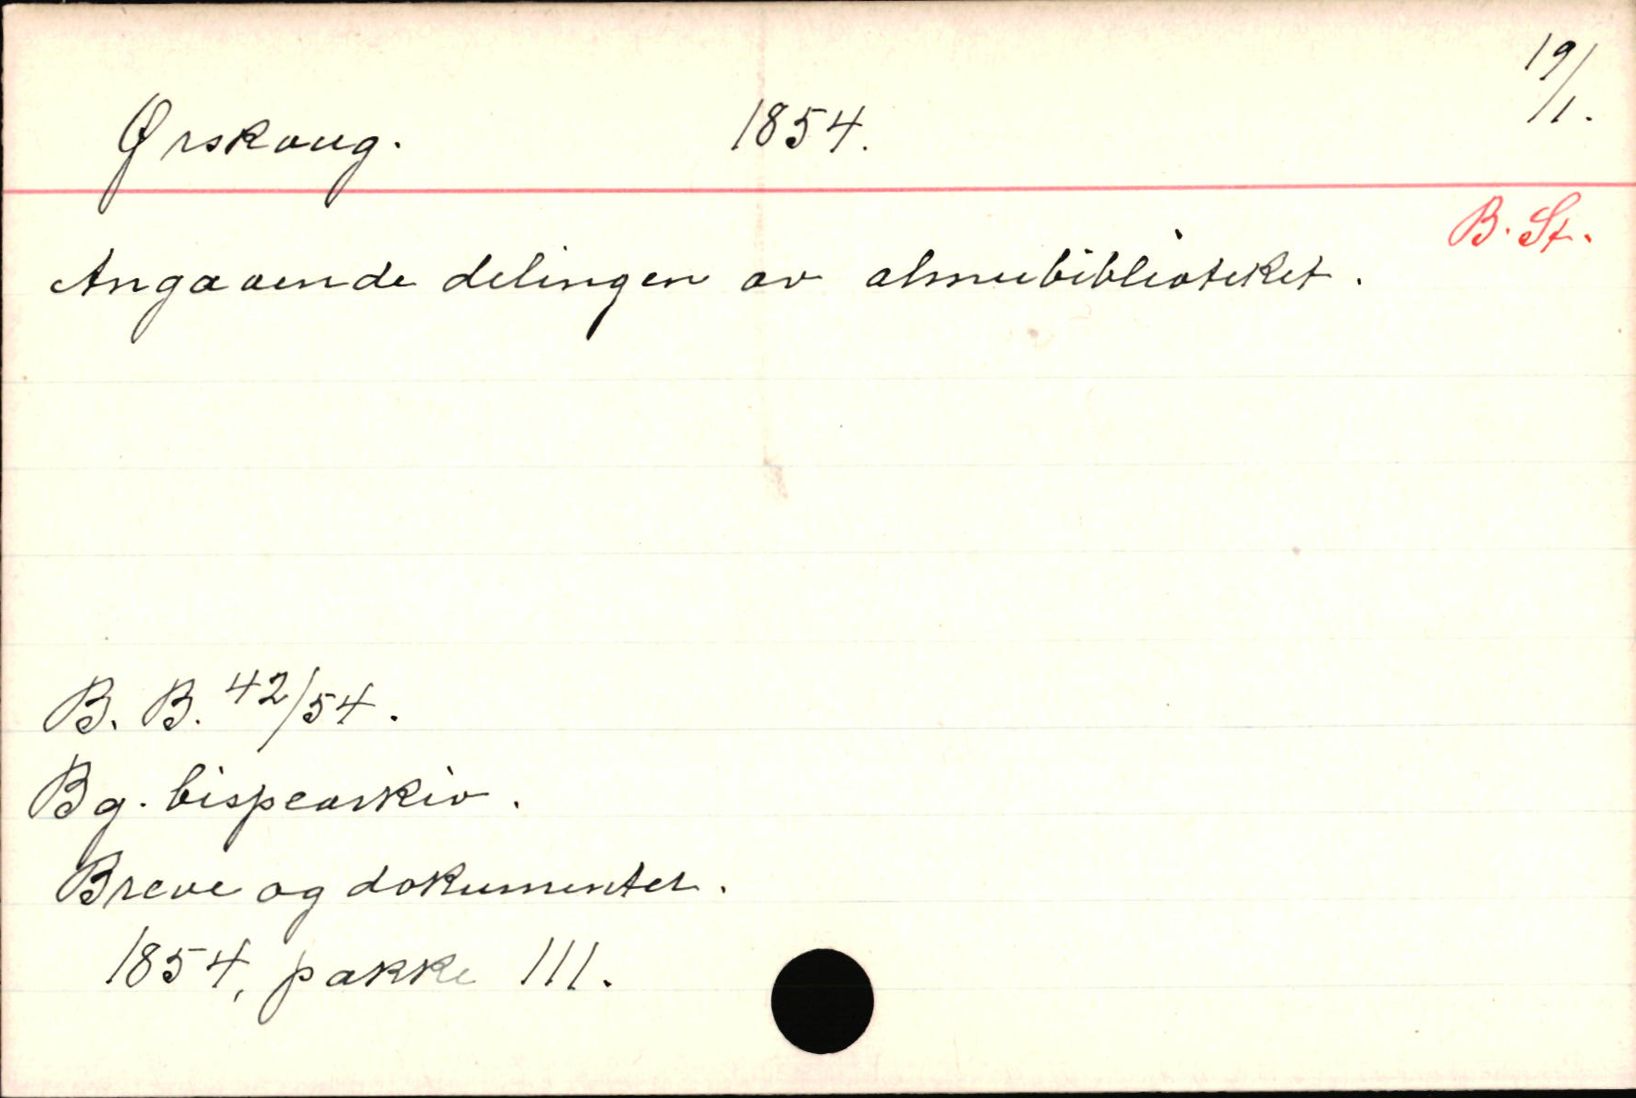 Ørskoug. 1854. 19/1.
B. St.
Angaaende delingen av almuebiblioteket.
B. B. 42/54.
Bg. bispearkiv.
Breve og dokumenter.
1854, pakke III.